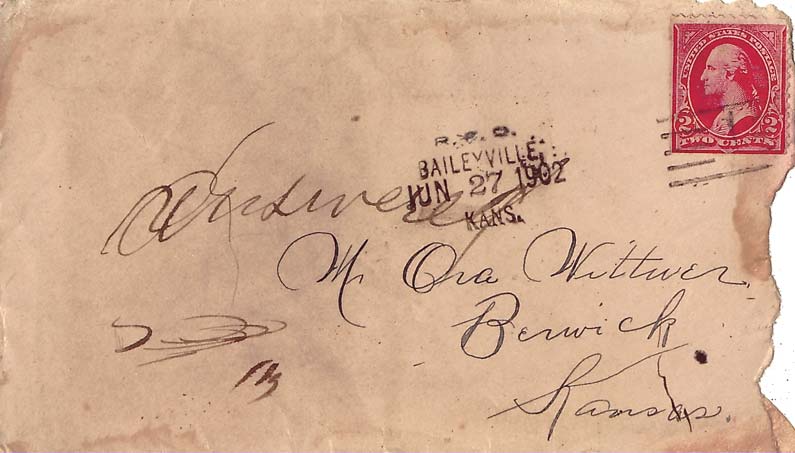 UNITED STATES POSTAGE
2 2
TWO CENTS
R. F. D.
BAILEYVILLE,
JUN 27 1902
KANS.
Answered
Mr Ora Wittwer
Berwick
Kansas.